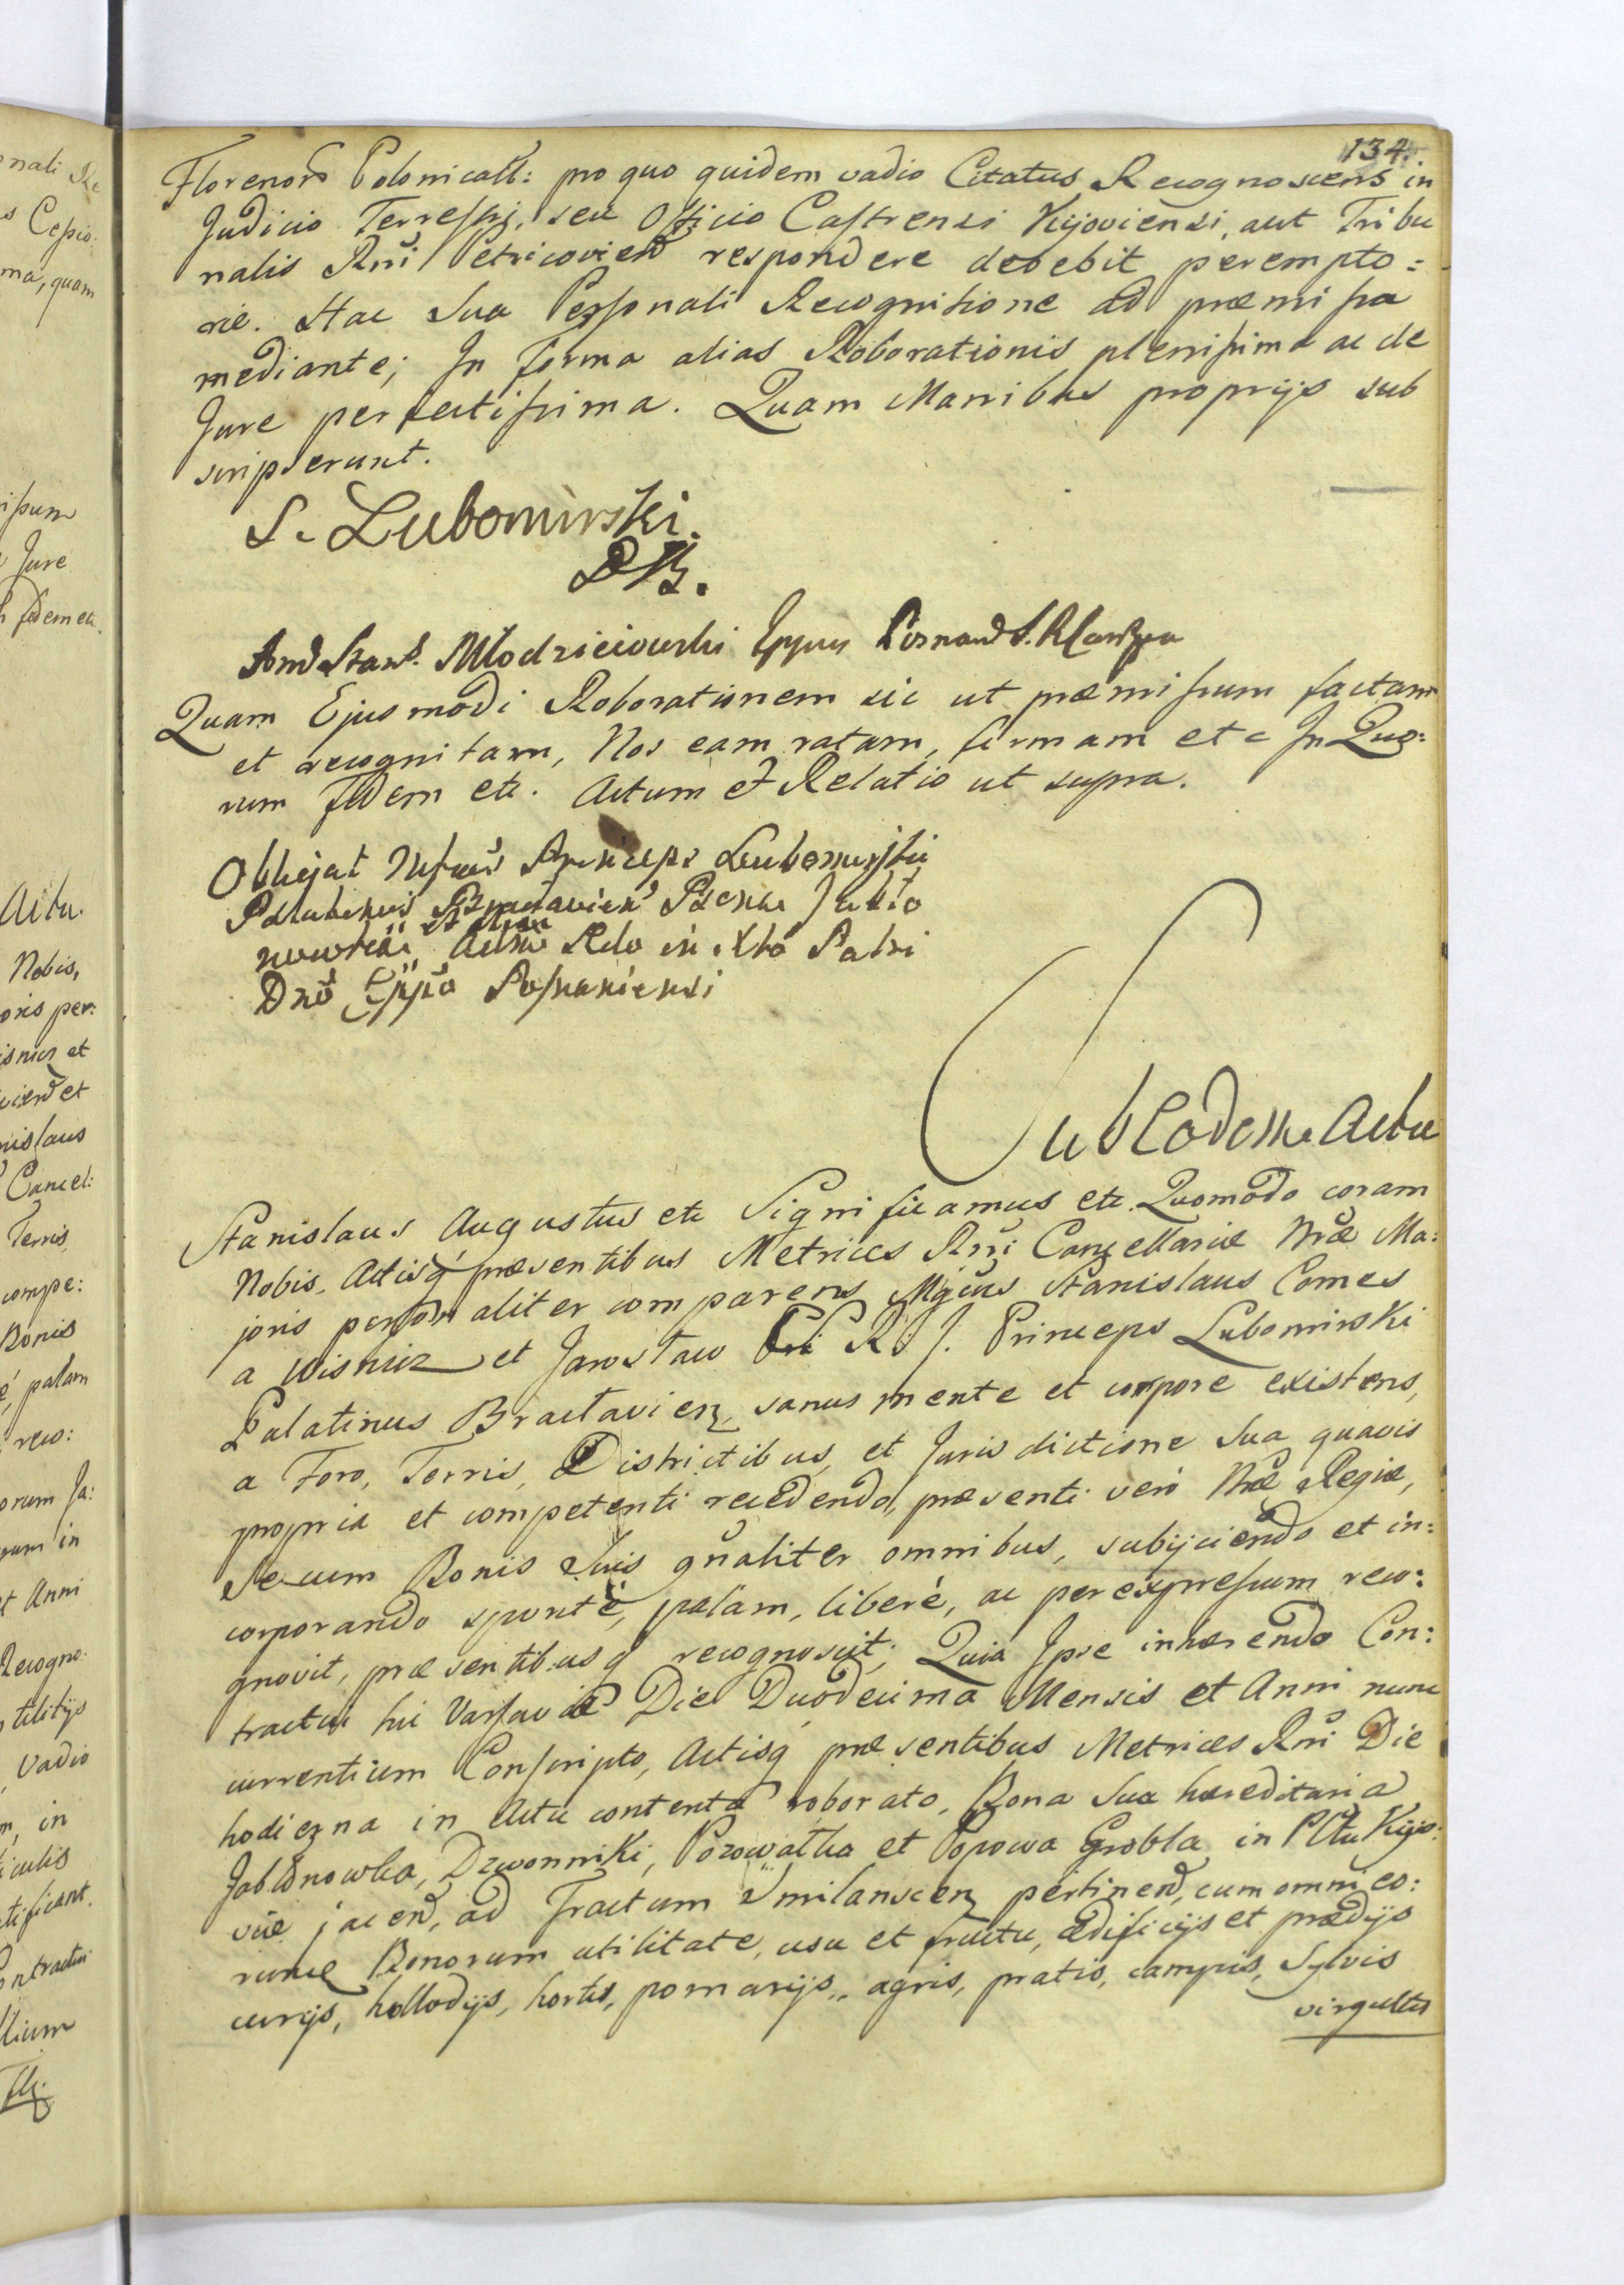 134.
Florenorũ Polonicalĩ: pro quo quidem vadio Citatus Recognoscens in
Judicio Terrestri, seu Officio Castrensi Kijoviensi, aut Tribu
nalis Rni Petricovien respondere debebit perempto:
rie. Hac Sua Personali Recognitione ad præmissa
mediante; In forma alias Roborationis plenissima ac de
Jure perfectissima. Quam Manibus proprijs sub
scripserunt.
S. Lubomirski
And Stan. Młodzieiowski Eppus Posnan
Quam Ejusmodi Roborationem sic ut præmissum factam
et recognitam, Nos eam ratam, firmam etc In Quo:
rum fidem etc. Actum et Relatio ut supra.
Obligat Princeps Lubomirski
Palatinus
Actum in Patri
Dno Eppo Posnaniensi
Sub Eodem Actu
Stanislaus Augustus etc Significamus etc. Quomodo coram
Nobis, Actisq præsentibus Metrices Rni Cancellariæ Nræ Ma:
joris personaliter comparens Mgcus Stanislaus Comes
a Wisnicz et Jarosław S. R. J. Princeps Lubomirski
Palatinus Bractavien, sanus mente et corpore existens,
a Foro, Terris, Districtibus, et Jurisdictione Sua quavis
propria et competenti recedendo, præsenti verò Nræ Regiæ,
Se cum Bonis Suis gnaliter omnibus, subijciendo et in:
corporando spontè, palàm, liberè, ac per expressum reco:
gnovit, præsentibusq recognoscit; Quia Ipse inhærendo Con:
tractui hic Varsaviæ Die Duodecima Mensis et Anni nunc
currentium Conscripto, Actisq præsentibus Metrices Rni Die
hodierna in Actu contento roborato, Bona Sua hæreditaria
Jabłonowka, Dzwonniki, Pozowatka et Popowa Grobla in Pttu Kijo:
viæ jacen, ad Tractum Smilanscen pertinen, cum omni eo:
rund Bonorum utilitate, usu et fructu, ædificijs et prædijs
curijs, hollodijs, hortis, pomarijs, agris, pratis, campis, Sylvis
virgultis
nali Re
Cessio
ma, quam
issum
Jure
fidem etc.
Actu.
Nobis,
oris per:
isnicz et
vien et
nislaus
Cancel:
Terris,
compe:
Bonis
è, palam
reco:
orum Ja:
in
et Anni
Recogno:
tilitijs
Vadio
m, in
iculis
tificant.
ontractui
lium